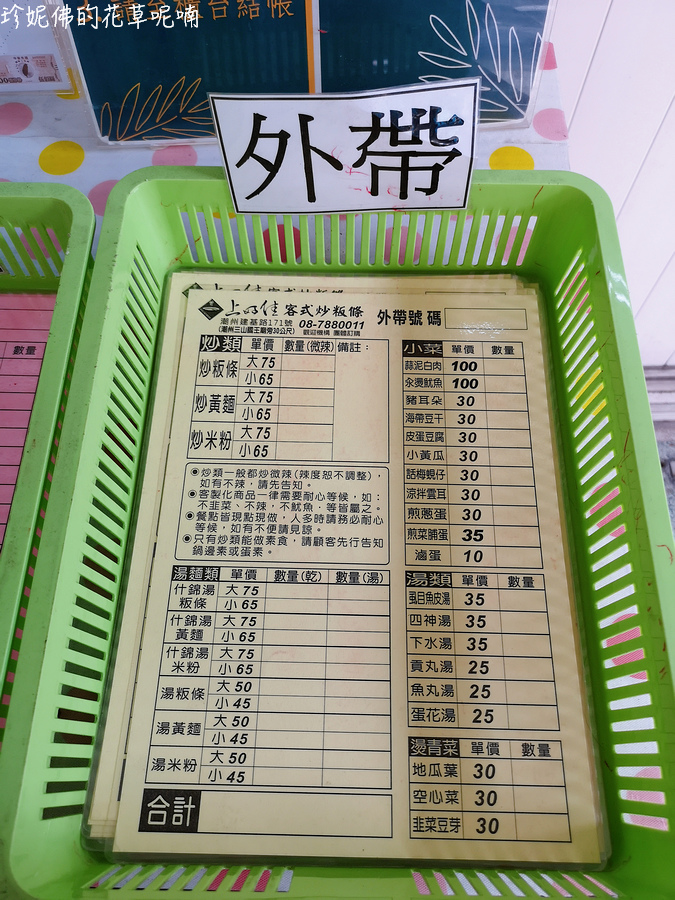 珍妮佛的花草呢喃
請至櫃台結帳
外帶
數量
上好佳 客式炒粄條
潮州建基路171號 08-7880011
(潮州三山國王廟旁30公尺) 歡迎機構 團體訂購
外帶號碼
炒類 單價 數量(微辣) 備註:
炒粄條 大 75
小 65
炒黃麵 大 75
小 65
炒米粉 大 75
小 65
●炒類一般都炒微辣(辣度恕不調整),
如有不辣,請先告知。
●客製化商品一律需要耐心等候,如:
不韭菜、不辣,不魷魚,等皆屬之。
●餐點皆現點現做,人多時請務必耐心
等候,如有不便請見諒。
●只有炒類能做素食,請顧客先行告知
鍋邊素或蛋素。
湯麵類 單價 數量(乾) 數量(湯)
什錦湯粄條 大 75
小 65
什錦湯黃麵 大 75
小 65
什錦湯米粉 大 75
小 65
湯粄條 大 50
小 45
湯黃麵 大 50
小 45
湯米粉 大 50
小 45
合計
小菜 單價 數量
蒜泥白肉 100
汆燙魷魚 100
豬耳朵 30
海帶豆干 30
皮蛋豆腐 30
小黃瓜 30
話梅蜆仔 30
涼拌雲耳 30
煎蔥蛋 30
煎菜脯蛋 35
滷蛋 10
湯類 單價 數量
虱目魚皮湯 35
四神湯 35
下水湯 35
貢丸湯 25
魚丸湯 25
蛋花湯 25
燙青菜 單價 數量
地瓜葉 30
空心菜 30
韭菜豆芽 30